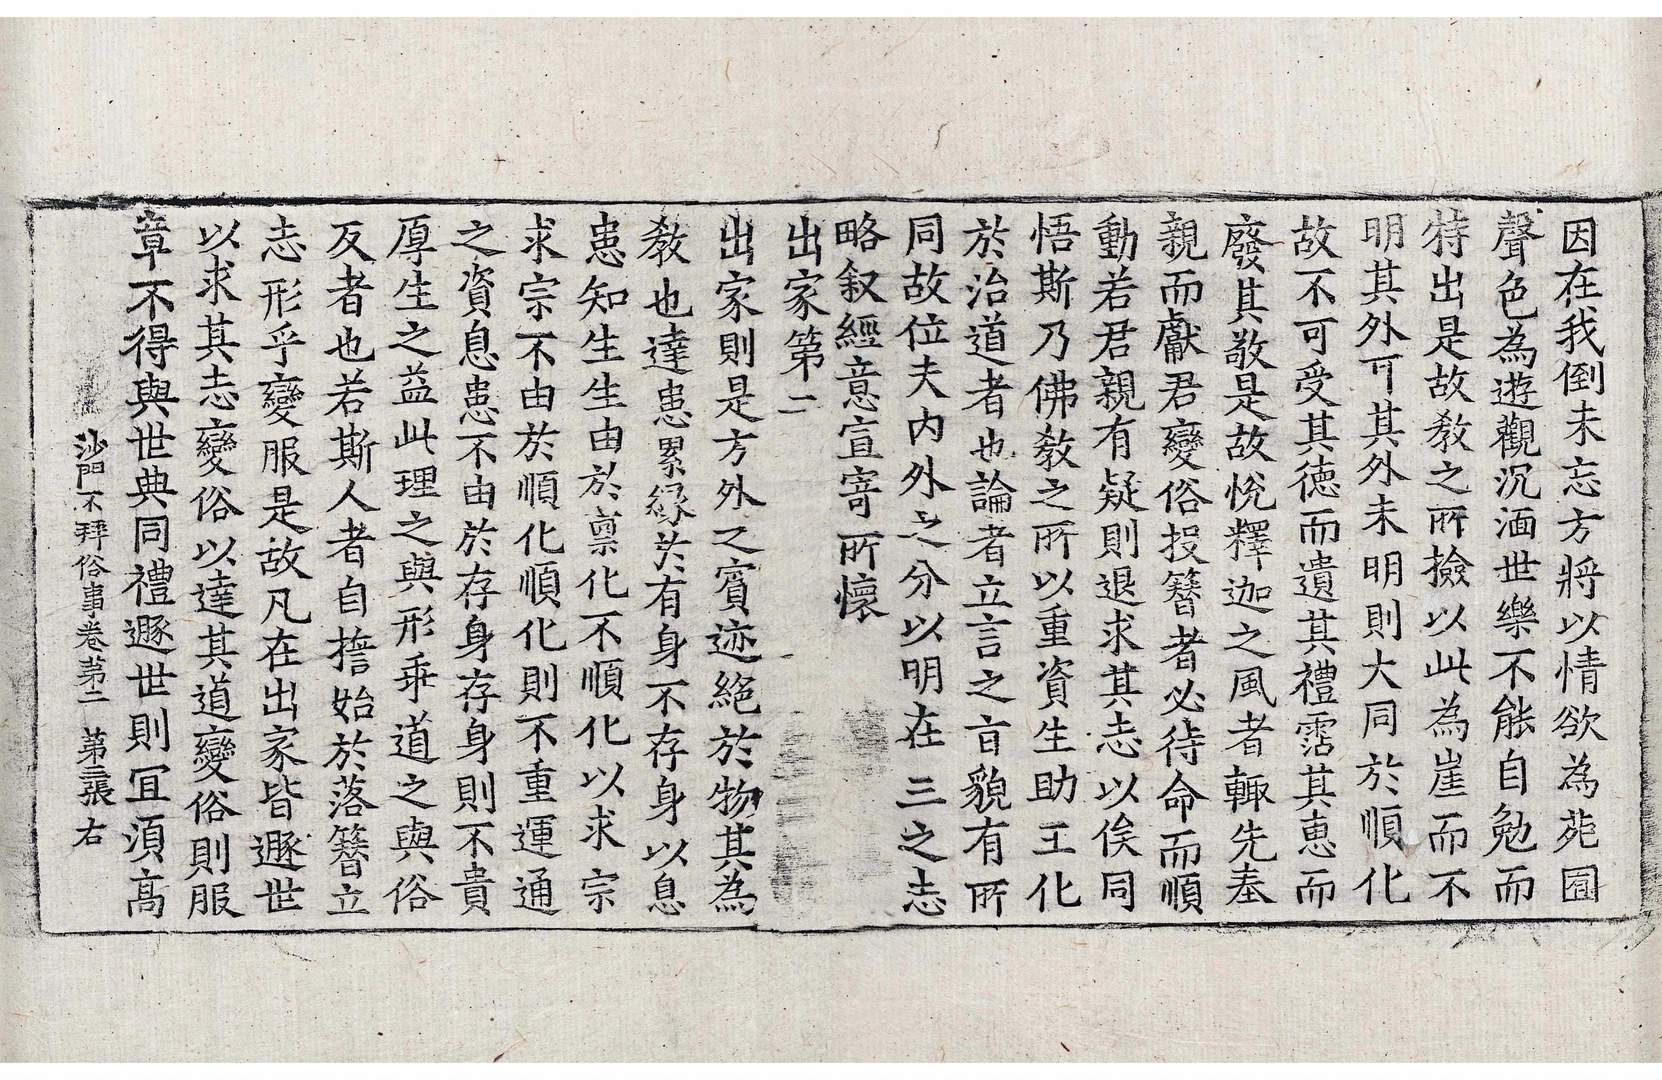 因在我倒未忘方將以情欲為苑囿
聲色為遊觀沉湎世樂不能自勉而
特出是故教之所撿以此為崖而不
明其外耳其外未明則大同於順化
故不可受其德而遺其禮霑其惠而
廢其敬是故悅釋迦之風者輙先奉
親而獻君變俗投簪者必待命而順
動若君親有疑則退求其志以俟同
悟斯乃佛教之所以重資生助王化
於治道者也論者立言之旨貌有所
同故位夫內外之分以明在三之志
略叙經意宣寄所懷
出家第二
出家則是方外之賓迹絕於物其為
教也達患累緣於有身不存身以息
患知生生由於禀化不順化以求宗
求宗不由於順化順化則不重運通
之資息患不由於存身存身則不貴
厚生之益此理之與形乖道之與俗
反者也若斯人者自誓始於落簪立
志形乎變服是故凡在出家皆遯世
以求其志變俗以達其道變俗則服
章不得與世典同禮遯世則冝須高
沙門不拜俗事卷第二　第三張　右